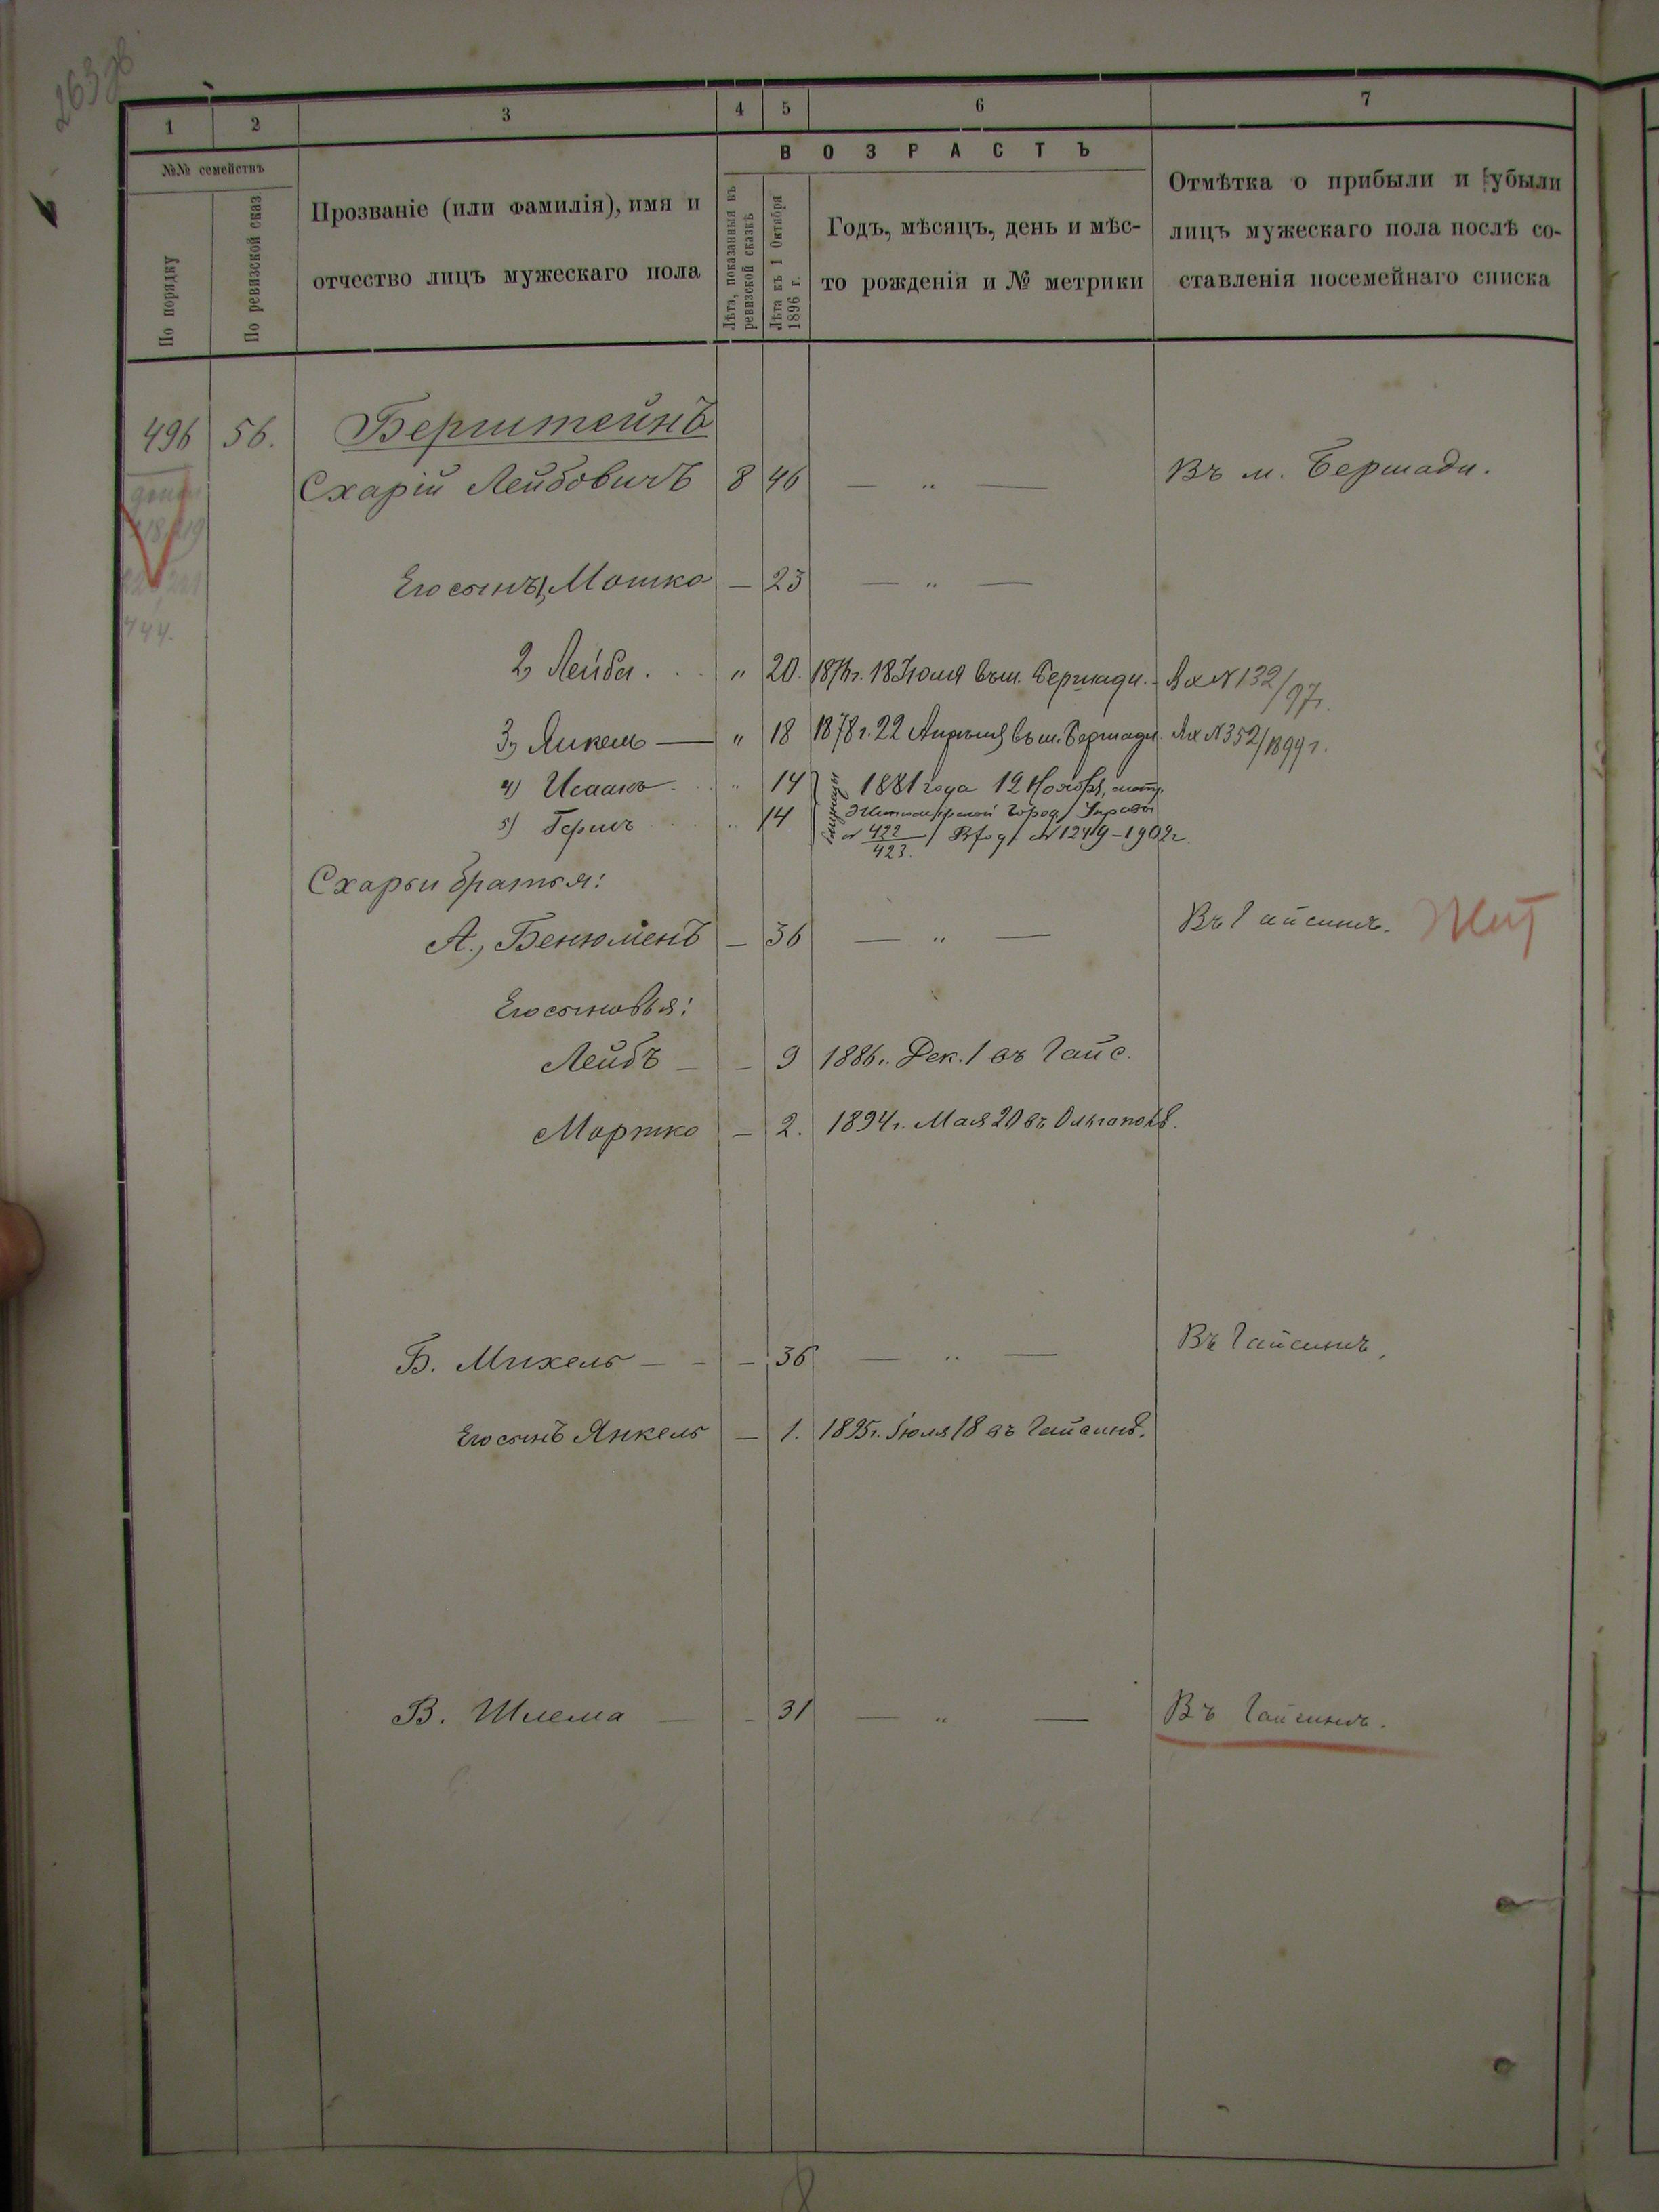 1 2 3 4 5 6 7
№№ семействъ
По порядку
По ревизской сказ.
Прозваніе (или фамилія), имя и
отчество лицъ мужескаго пола
ВОЗРАСТЪ
Лѣта, показанныя въ
ревизской сказкѣ
Лѣта къ 1 Октября
1896 г.
Годъ, мѣсяцъ, день и мѣс-
то рожденія и № метрики
Отмѣтка о прибыли и убыли
лицъ мужескаго пола послѣ со-
ставленія посемейнаго списка
496 56. Берштейнъ
Схарій Лейбовичъ 8 46 — " — Въ м. Бершади.
Его сынъ 1, Мошко — 23 — " —
2, Лейба . . " 20. 1876 г. 18 Іюля въ м. Бершади. № 132/97 г.
3, Янкель — " 18 1878 г. 22 Апрѣля въ м. Бершади. № 352/1899 г.
4) Исаакъ . " 14 1881 года 12 Ноября, метр.
5) Гершъ " 14 Житомирской Город. Управы
№ 422/423. № 1249-1902 г.
Схарьи братья:
А., Бенюменъ — 36 — " — Въ Гайсинѣ. Жит
Его сыновья:
Лейбъ — — 9 1886 г. Дек. 1 въ Гайс.
Мортко — 2. 1894 г. Мая 20 въ Ольгополѣ.
Б. Михель — — — 36 — " — Въ Гайсинѣ.
Его сынъ Янкель — 1. 1895 г. Іюля 18 въ Гайсинѣ.
В. Шлема — — 31 — " — Въ Гайсинѣ.